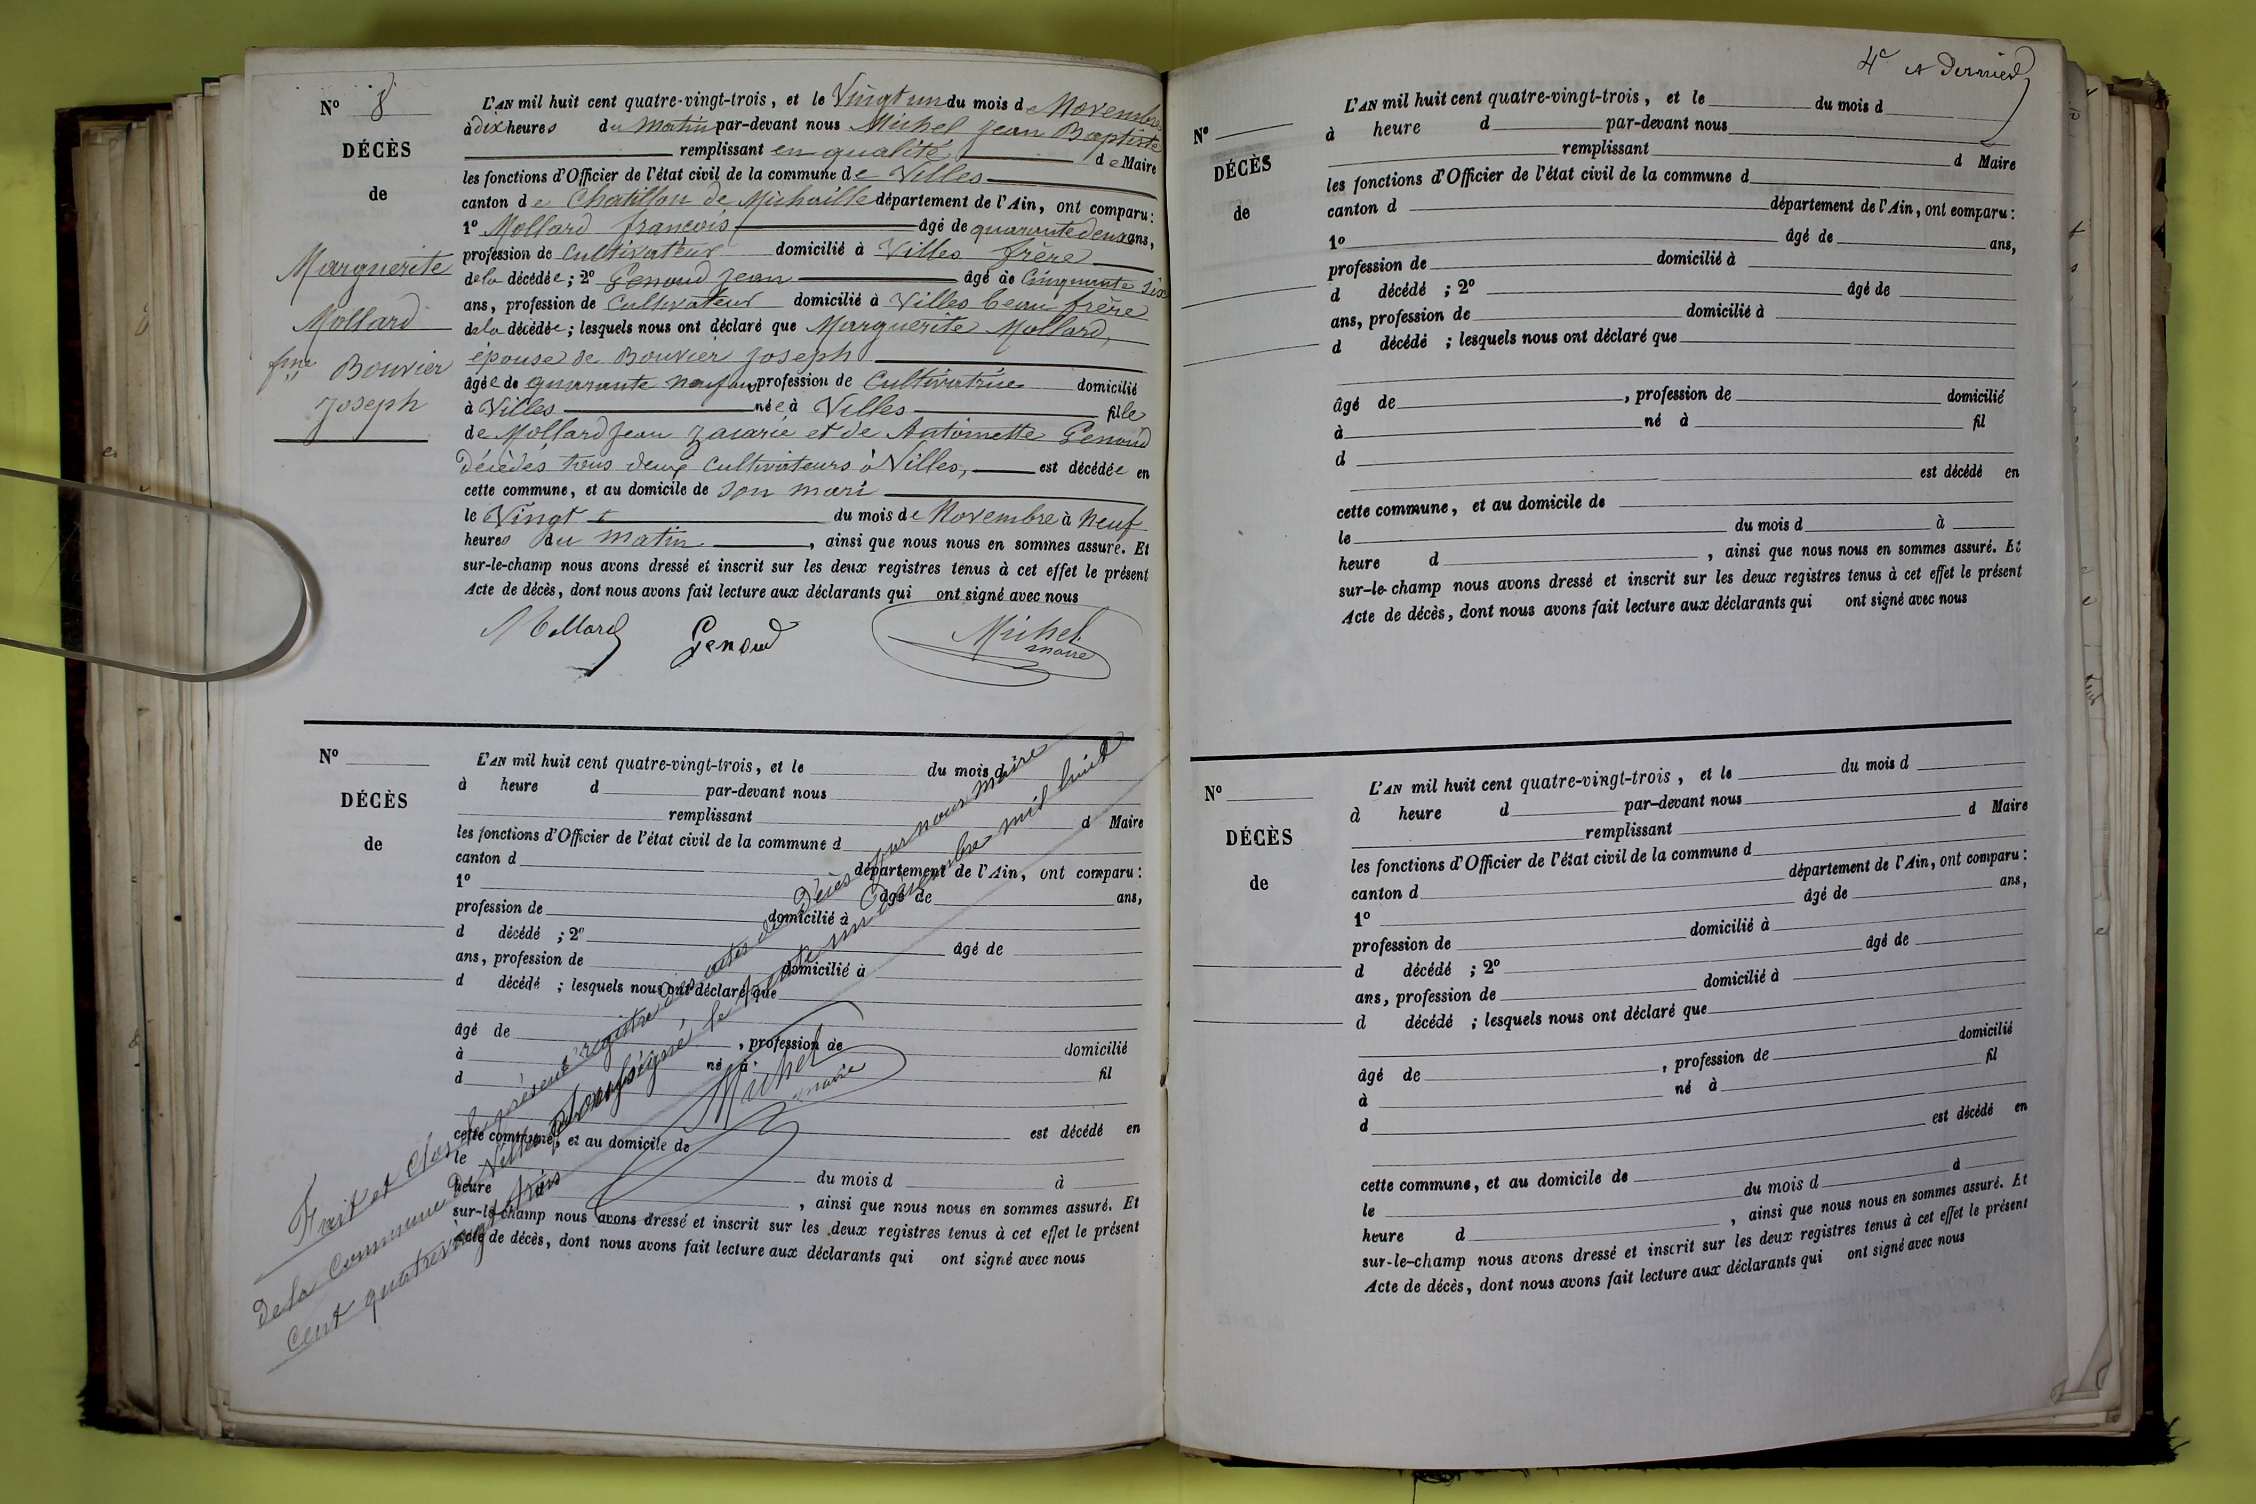 N° 8
DÉCÈS
de
Marguerite
Mollard
fme Bouvier
Joseph
L'AN mil huit cent quatre-vingt-trois, et le Vingt un du mois de Novembre
à dix heures du Matin par-devant nous Michel Jean Baptiste
remplissant en qualité de Maire
les fonctions d'Officier de l'état civil de la commune de Villes
canton de Chatillon de Michaille département de l'Ain, ont comparu :
1° Mollard françois âgé de quarante deux ans,
profession de Cultivateur domicilié à Villes frère
de la décédée ; 2° Genoud Jean âgé de Cinquante six
ans, profession de Cultivateur domicilié à Villes beau frère
de la décédée ; lesquels nous ont déclaré que Marguerite Mollard,
épouse de Bouvier Joseph
âgée de quarante neuf ans profession de Cultivatrice domicilié
à Villes née à Villes fille
de Mollard Jean Zacarie et de Antoinette Genoud
Décédés tous deux cultivateurs à Villes, est décédée en
cette commune, et au domicile de son mari
le Vingt du mois de Novembre à Neuf
heures du Matin, ainsi que nous nous en sommes assuré. Et
sur-le-champ nous avons dressé et inscrit sur les deux registres tenus à cet effet le présent
Acte de décès, dont nous avons fait lecture aux déclarants qui ont signé avec nous
Mollard Genoud Michel
maire
N°
DÉCÈS
de
L'AN mil huit cent quatre-vingt-trois, et le du mois d
à heure d par-devant nous
remplissant d Maire
les fonctions d'Officier de l'état civil de la commune d
canton d département de l'Ain, ont comparu :
1° âgé de ans,
profession de domicilié à
d décédé ; 2° âgé de
ans, profession de domicilié à
d décédé ; lesquels nous ont déclaré que
âgé de , profession de domicilié
à né à fil
d
est décédé en
cette commune, et au domicile de
le du mois d à
heure d , ainsi que nous nous en sommes assuré. Et
sur-le-champ nous avons dressé et inscrit sur les deux registres tenus à cet effet le présent
Acte de décès, dont nous avons fait lecture aux déclarants qui ont signé avec nous
Fait et Clos le présent registre des actes de Décès par nous maire
De la Commune de Villes soussigné, le mil huit
Cent quatre vingt trois
Michel
maire
4e et dernier
N°
DÉCÈS
de
L'AN mil huit cent quatre-vingt-trois, et le du mois d
à heure d par-devant nous
remplissant d Maire
les fonctions d'Officier de l'état civil de la commune d
canton d département de l'Ain, ont comparu :
1° âgé de ans,
profession de domicilié à
d décédé ; 2° âgé de
ans, profession de domicilié à
d décédé ; lesquels nous ont déclaré que
âgé de , profession de domicilié
à né à fil
d
est décédé en
cette commune, et au domicile de
le du mois d à
heure d , ainsi que nous nous en sommes assuré. Et
sur-le-champ nous avons dressé et inscrit sur les deux registres tenus à cet effet le présent
Acte de décès, dont nous avons fait lecture aux déclarants qui ont signé avec nous
N°
DÉCÈS
de
L'AN mil huit cent quatre-vingt-trois, et le du mois d
à heure d par-devant nous
remplissant d Maire
les fonctions d'Officier de l'état civil de la commune d
canton d département de l'Ain, ont comparu :
1° âgé de ans,
profession de domicilié à
d décédé ; 2° âgé de
ans, profession de domicilié à
d décédé ; lesquels nous ont déclaré que
âgé de , profession de domicilié
à né à fil
d
est décédé en
cette commune, et au domicile de
le du mois d d
heure d , ainsi que nous nous en sommes assuré. Et
sur-le-champ nous avons dressé et inscrit sur les deux registres tenus à cet effet le présent
Acte de décès, dont nous avons fait lecture aux déclarants qui ont signé avec nous